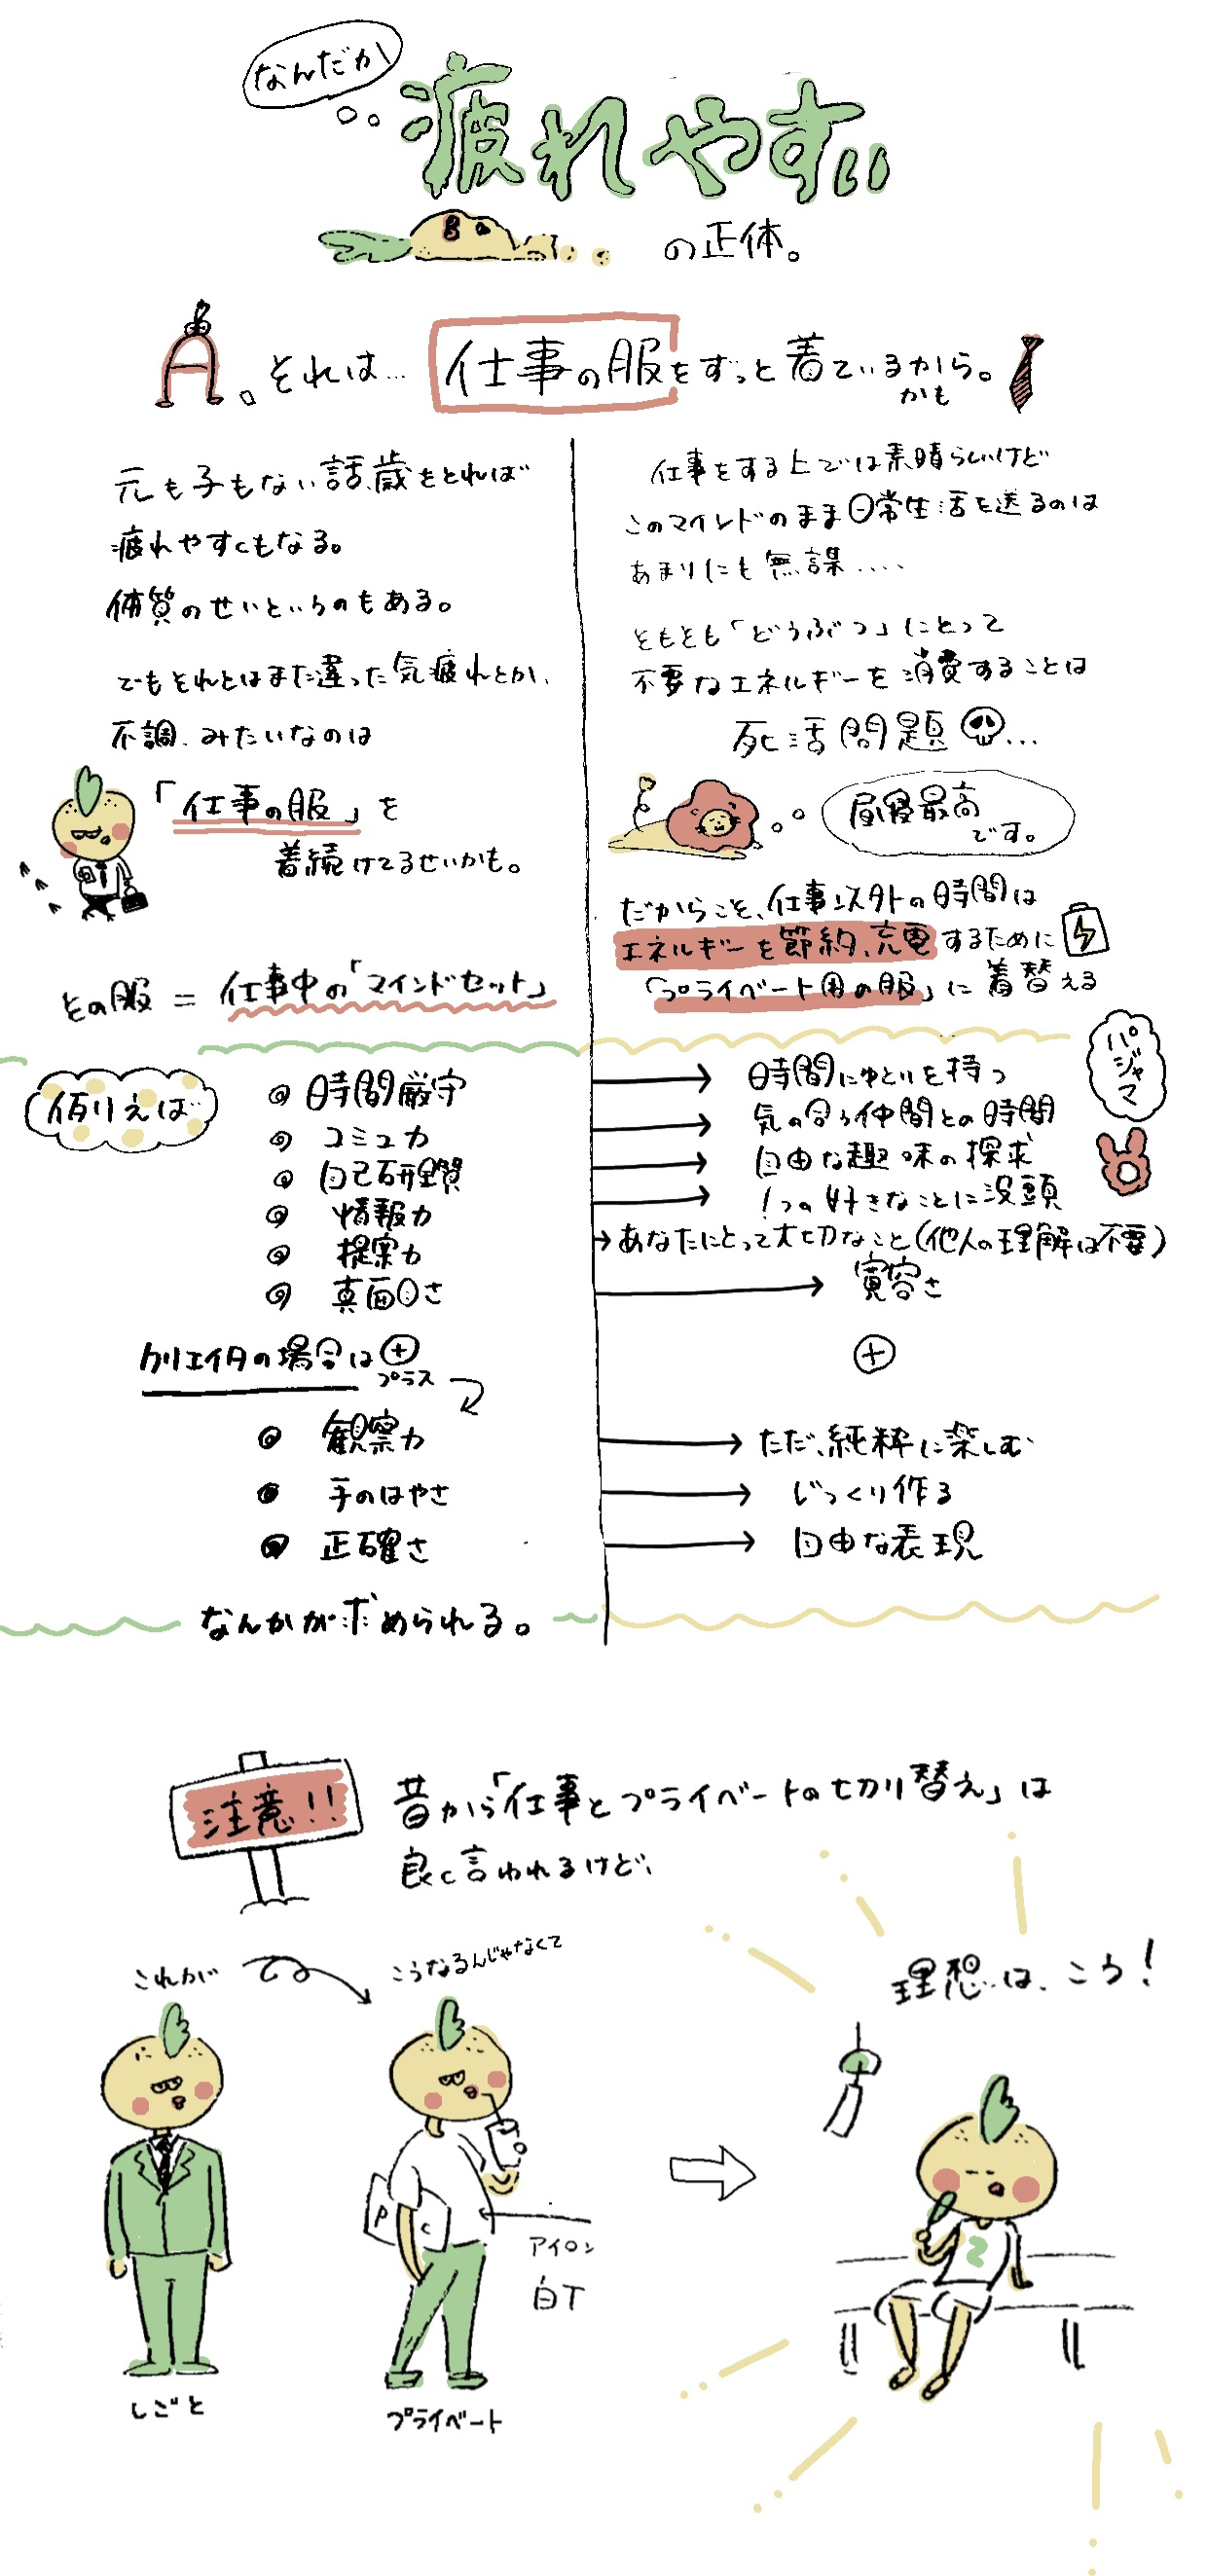 なんだか
疲れやすい
の正体。
A. それは… 仕事の服をずっと着ているから。
かも
元も子もない話、歳をとれば
疲れやすくもなる。
体質のせいというのもある。
でもそれとはまた違った気疲れとか、
不調、みたいなのは
「仕事の服」を
着続けてるせいかも。
その服 = 仕事中の「マインドセット」
仕事をする上では素晴らしいけど
このマインドのまま日常生活を送るのは
あまりにも無謀....
そもそも「どうぶつ」にとって
不要なエネルギーを消費することは
死活問題...
昼寝最高
です。
だからこそ、仕事以外の時間は
エネルギーを節約、充電するために
「プライベート用の服」に着替える
パジャマ
例えば
時間厳守 → 時間にゆとりを持つ
コミュ力 → 気の合う仲間との時間
自己研鑽 → 自由な趣味の探求
情報力 → 1つの好きなことに没頭
提案力 → あなたにとって大切なこと(他人の理解は不要)
真面目さ → 寛容さ
クリエイタの場合は+
プラス
+
観察力 → ただ、純粋に楽しむ
手のはやさ → じっくり作る
正確さ → 自由な表現
なんかが求められる。
注意!!
昔から「仕事とプライベートの切り替え」は
良く言われるけど、
これが
こうなるんじゃなくて
理想は、こう!
PC
アイロン
白T
しごと
プライベート